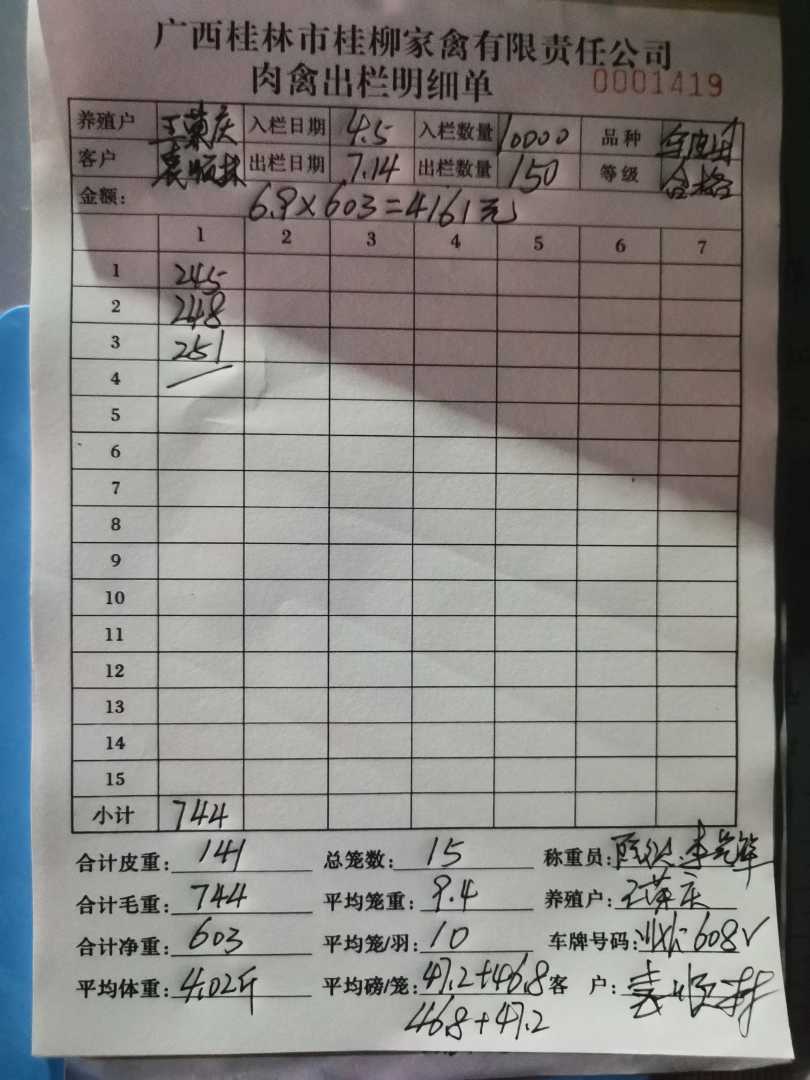 广西桂林市桂柳家禽有限责任公司
肉禽出栏明细单 0001419
养殖户 王荣庆 入栏日期 4.5 入栏数量 10000 品种
客户 袁顺林 出栏日期 7.14 出栏数量 150 等级 合格
金额: 6.9×603=4161元
1 2 3 4 5 6 7
1 245
2 248
3 251
4
5
6
7
8
9
10
11
12
13
14
15
小计 744
合计皮重: 141 总笼数: 15 称重员:
合计毛重: 744 平均笼重: 9.4 养殖户: 王荣庆
合计净重: 603 平均笼/羽: 10 车牌号码: 608V
平均体重: 4.02斤 平均磅/笼: 47.2+46.8 客 户:
46.8+47.2